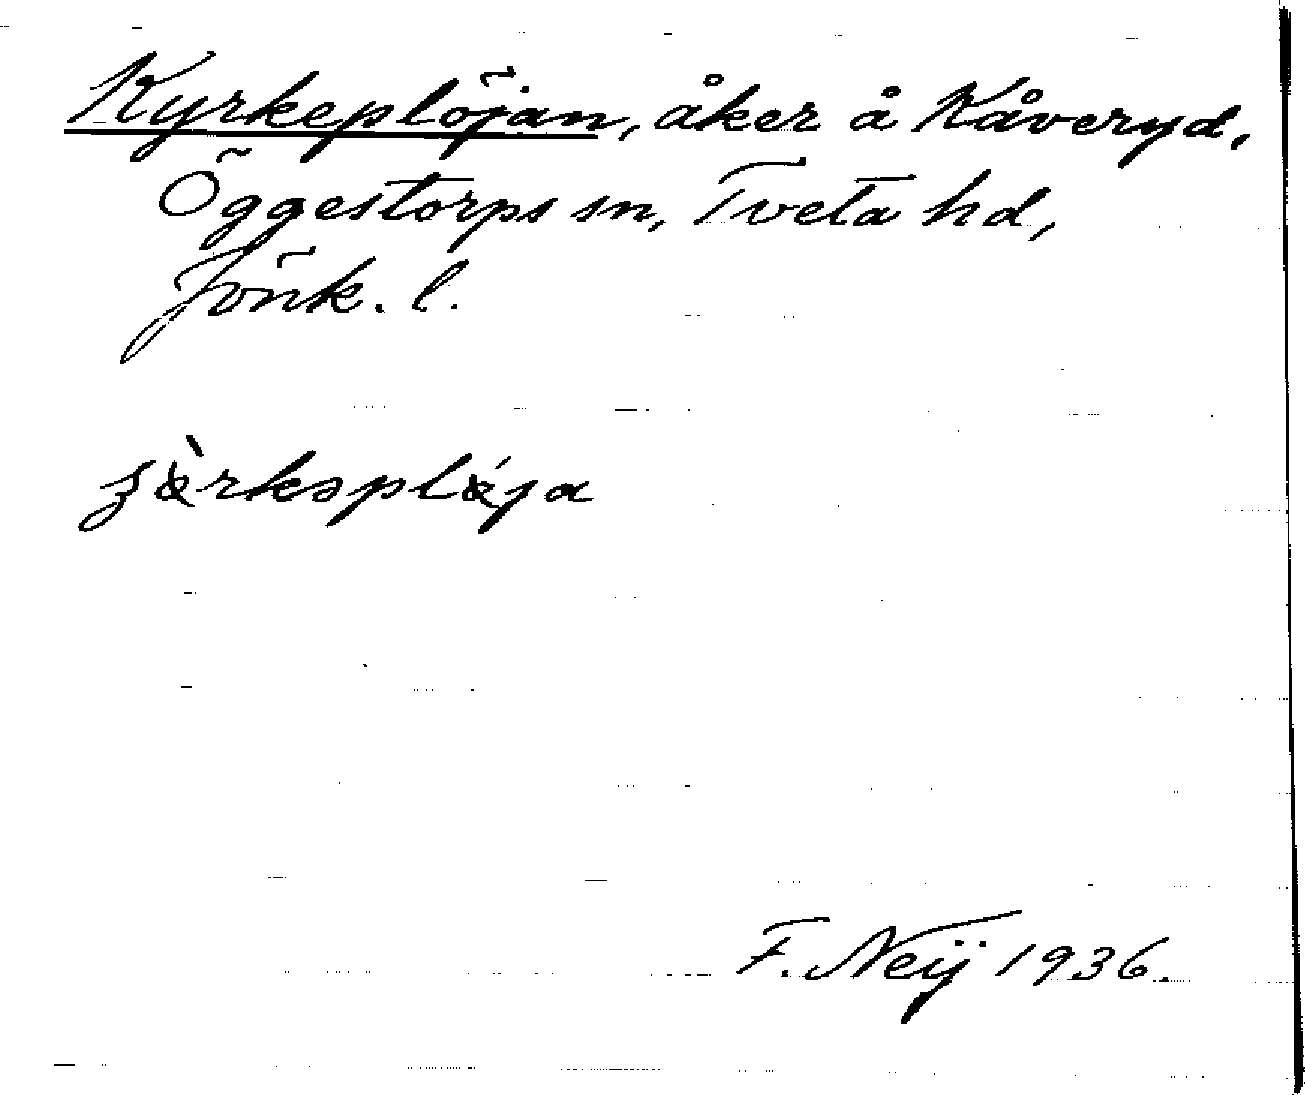 Kyrkeplöjan, åker å Kåveryd,
Öggestorps sn, Tveta hd,
Jönk. l.
F. Neij 1936.